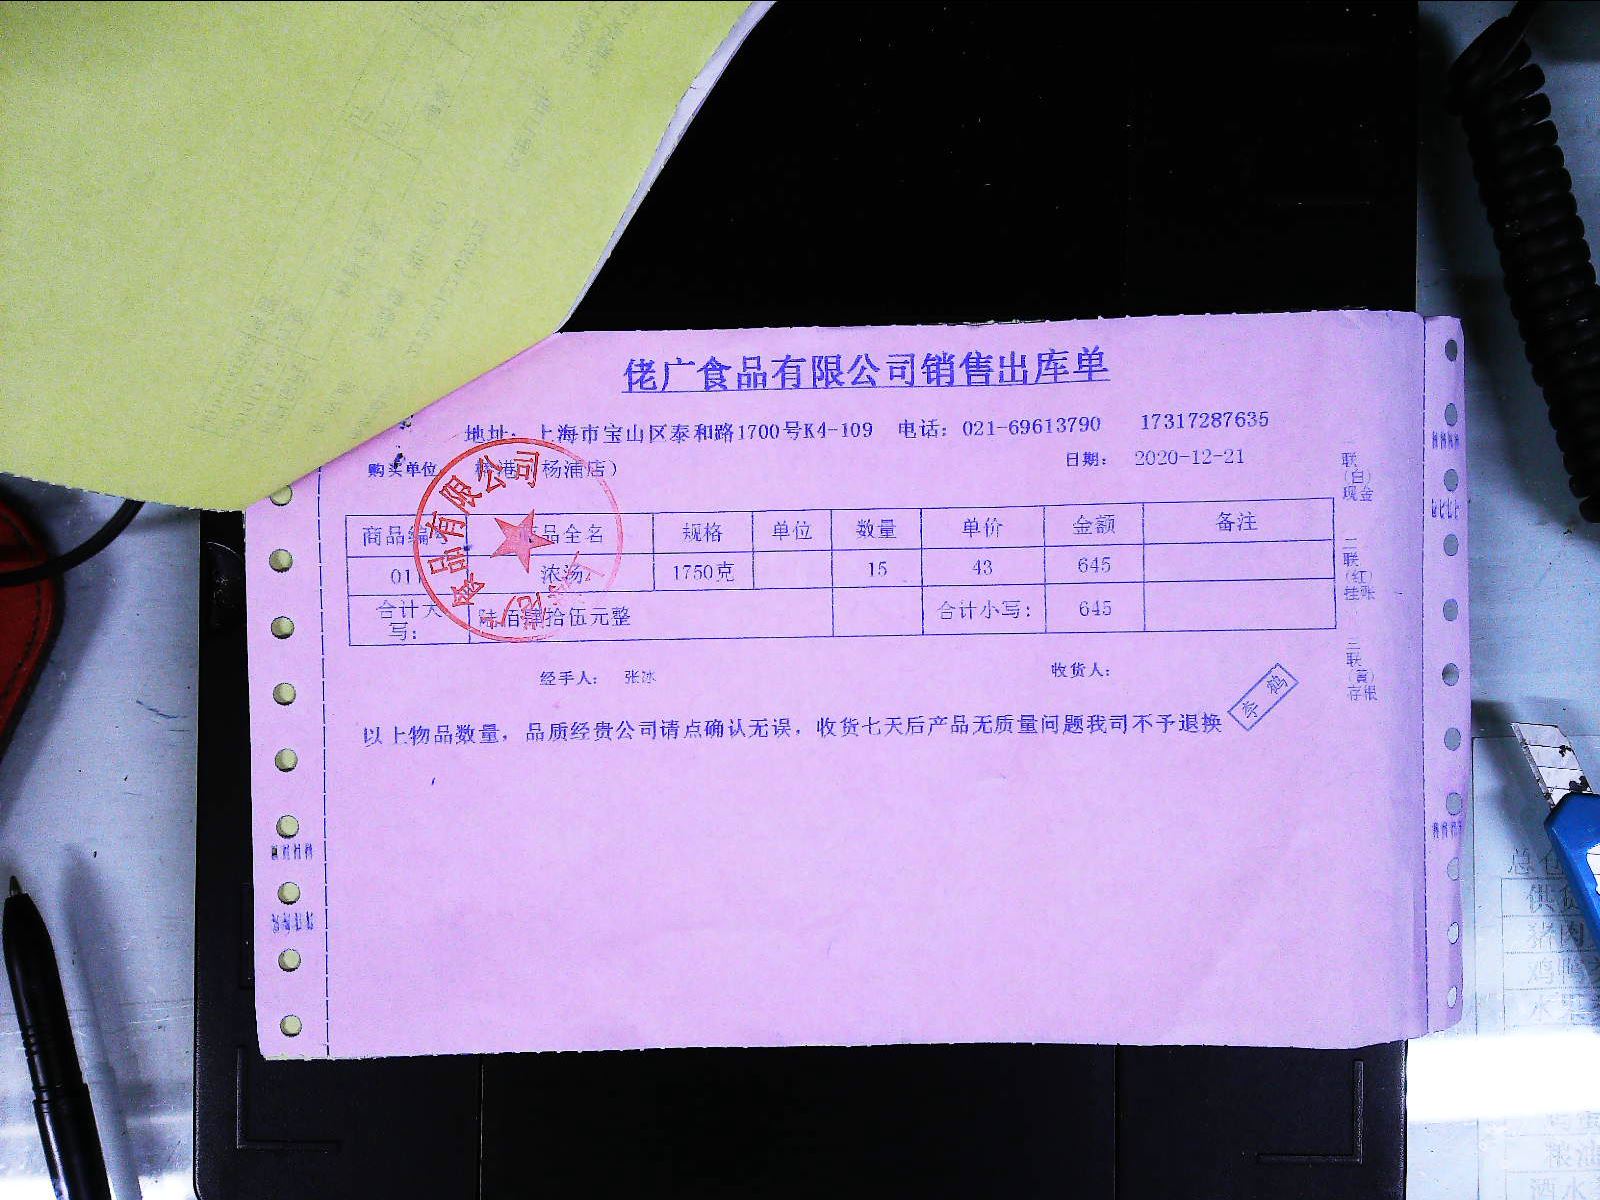 佬广食品有限公司销售出库单
地址: 上海市宝山区泰和路1700号K4-109 电话: 021-69613790 17317287635
购买单位 港（杨浦店） 日期: 2020-12-21
商品编号 商品全名 规格 单位 数量 单价 金额 备注
01 浓汤 1750克 15 43 645
合计大写: 陆佰肆拾伍元整 合计小写: 645
经手人: 张冰 收货人:
李鹤
以上物品数量, 品质经贵公司请点确认无误, 收货七天后产品无质量问题我司不予退换
一联(白)现金
二联(红)挂账
三联(黄)存根
食品有限公司
总仓
供货
猪肉
鸡鸭
水